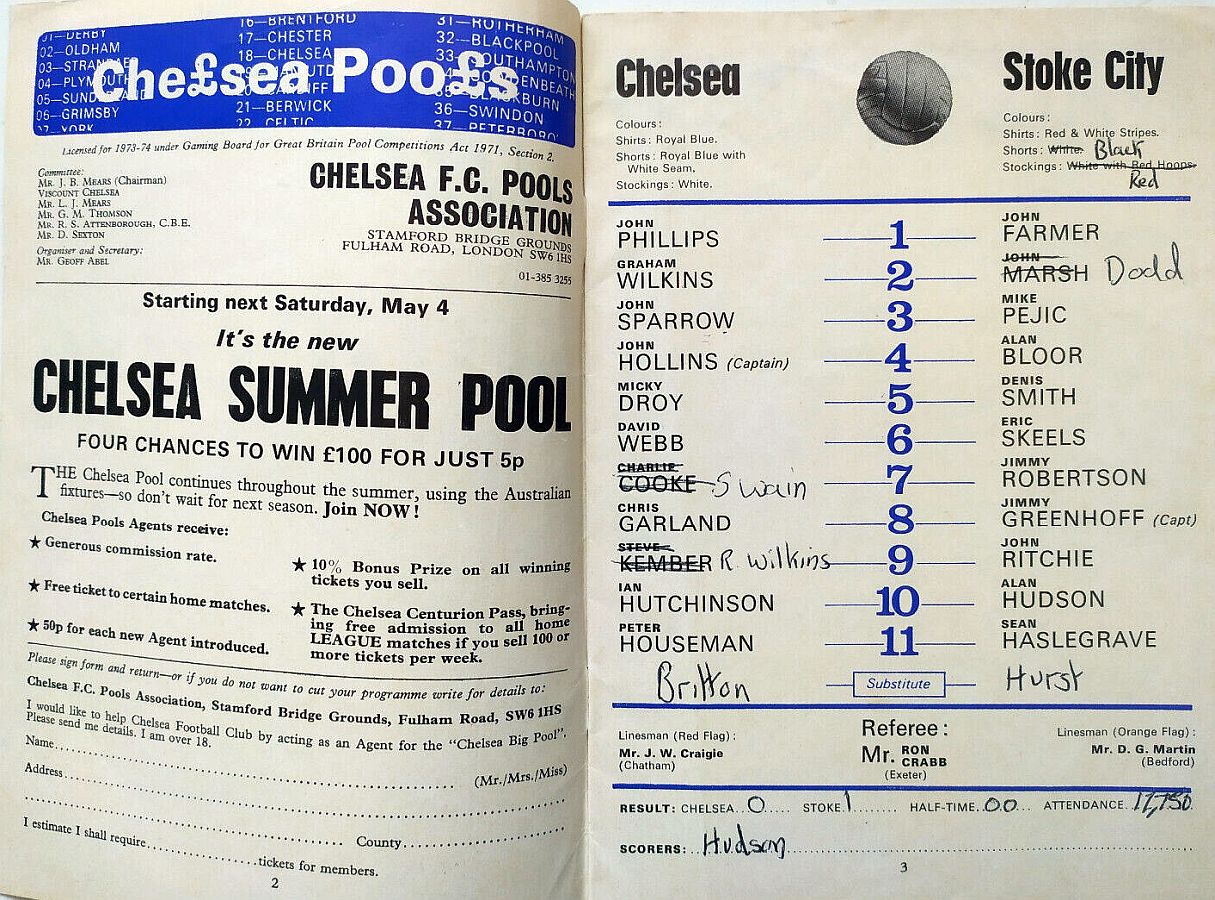 01—DERBY
02—OLDHAM
03—STRANRAER
04—PLYMOUTH
05—SUND
06—GRIMSBY
07—YORK
16—BRENTFORD
17—CHESTER
18—CHELSEA
21—BERWICK
22—CELTIC
31—ROTHERHAM
32—BLACKPOOL
33—SOUTHAMPTON
36—SWINDON
37—PETERBORO'
Che£sea Poo£s
Licensed for 1973-74 under Gaming Board for Great Britain Pool Competitions Act 1971, Section 2.
Committee:
MR. J. B. MEARS (Chairman)
VISCOUNT CHELSEA
MR. L. J. MEARS
MR. G. M. THOMSON
MR. R. S. ATTENBOROUGH, C.B.E.
MR. D. SEXTON
Organiser and Secretary:
MR. GEOFF ABEL
CHELSEA F.C. POOLS
ASSOCIATION
STAMFORD BRIDGE GROUNDS
FULHAM ROAD, LONDON SW6 1HS
01-385 3255
Starting next Saturday, May 4
It's the new
CHELSEA SUMMER POOL
FOUR CHANCES TO WIN £100 FOR JUST 5p
THE Chelsea Pool continues throughout the summer, using the Australian
fixtures—so don't wait for next season. Join NOW!
Chelsea Pools Agents receive:
★ Generous commission rate.
★ Free ticket to certain home matches.
★ 50p for each new Agent introduced.
★ 10% Bonus Prize on all winning
tickets you sell.
★ The Chelsea Centurion Pass, bring-
ing free admission to all home
LEAGUE matches if you sell 100 or
more tickets per week.
Please sign form and return—or if you do not want to cut your programme write for details to:
Chelsea F.C. Pools Association, Stamford Bridge Grounds, Fulham Road, SW6 1HS
I would like to help Chelsea Football Club by acting as an Agent for the "Chelsea Big Pool".
Please send me details. I am over 18.
Name
(Mr./Mrs./Miss)
Address
County
I estimate I shall require tickets for members.
2
Chelsea
Colours:
Shirts: Royal Blue.
Shorts: Royal Blue with
White Seam.
Stockings: White.
Stoke City
Colours:
Shirts: Red & White Stripes.
Shorts: White. Black
Stockings: White with Red Hoops.
Red
JOHN PHILLIPS 1 JOHN FARMER
GRAHAM WILKINS 2 JOHN MARSH Dodd
JOHN SPARROW 3 MIKE PEJIC
JOHN HOLLINS (Captain) 4 ALAN BLOOR
MICKY DROY 5 DENIS SMITH
DAVID WEBB 6 ERIC SKEELS
CHARLIE COOKE Swain 7 JIMMY ROBERTSON
CHRIS GARLAND 8 JIMMY GREENHOFF (Capt)
STEVE KEMBER R. Wilkins 9 JOHN RITCHIE
IAN HUTCHINSON 10 ALAN HUDSON
PETER HOUSEMAN 11 SEAN HASLEGRAVE
Britton Substitute Hurst
Linesman (Red Flag):
Mr. J. W. Craigie
(Chatham)
Referee:
Mr. RON CRABB
(Exeter)
Linesman (Orange Flag):
Mr. D. G. Martin
(Bedford)
RESULT: CHELSEA 0 STOKE 1 HALF-TIME 0 0 ATTENDANCE 17,750
SCORERS: Hudson
3